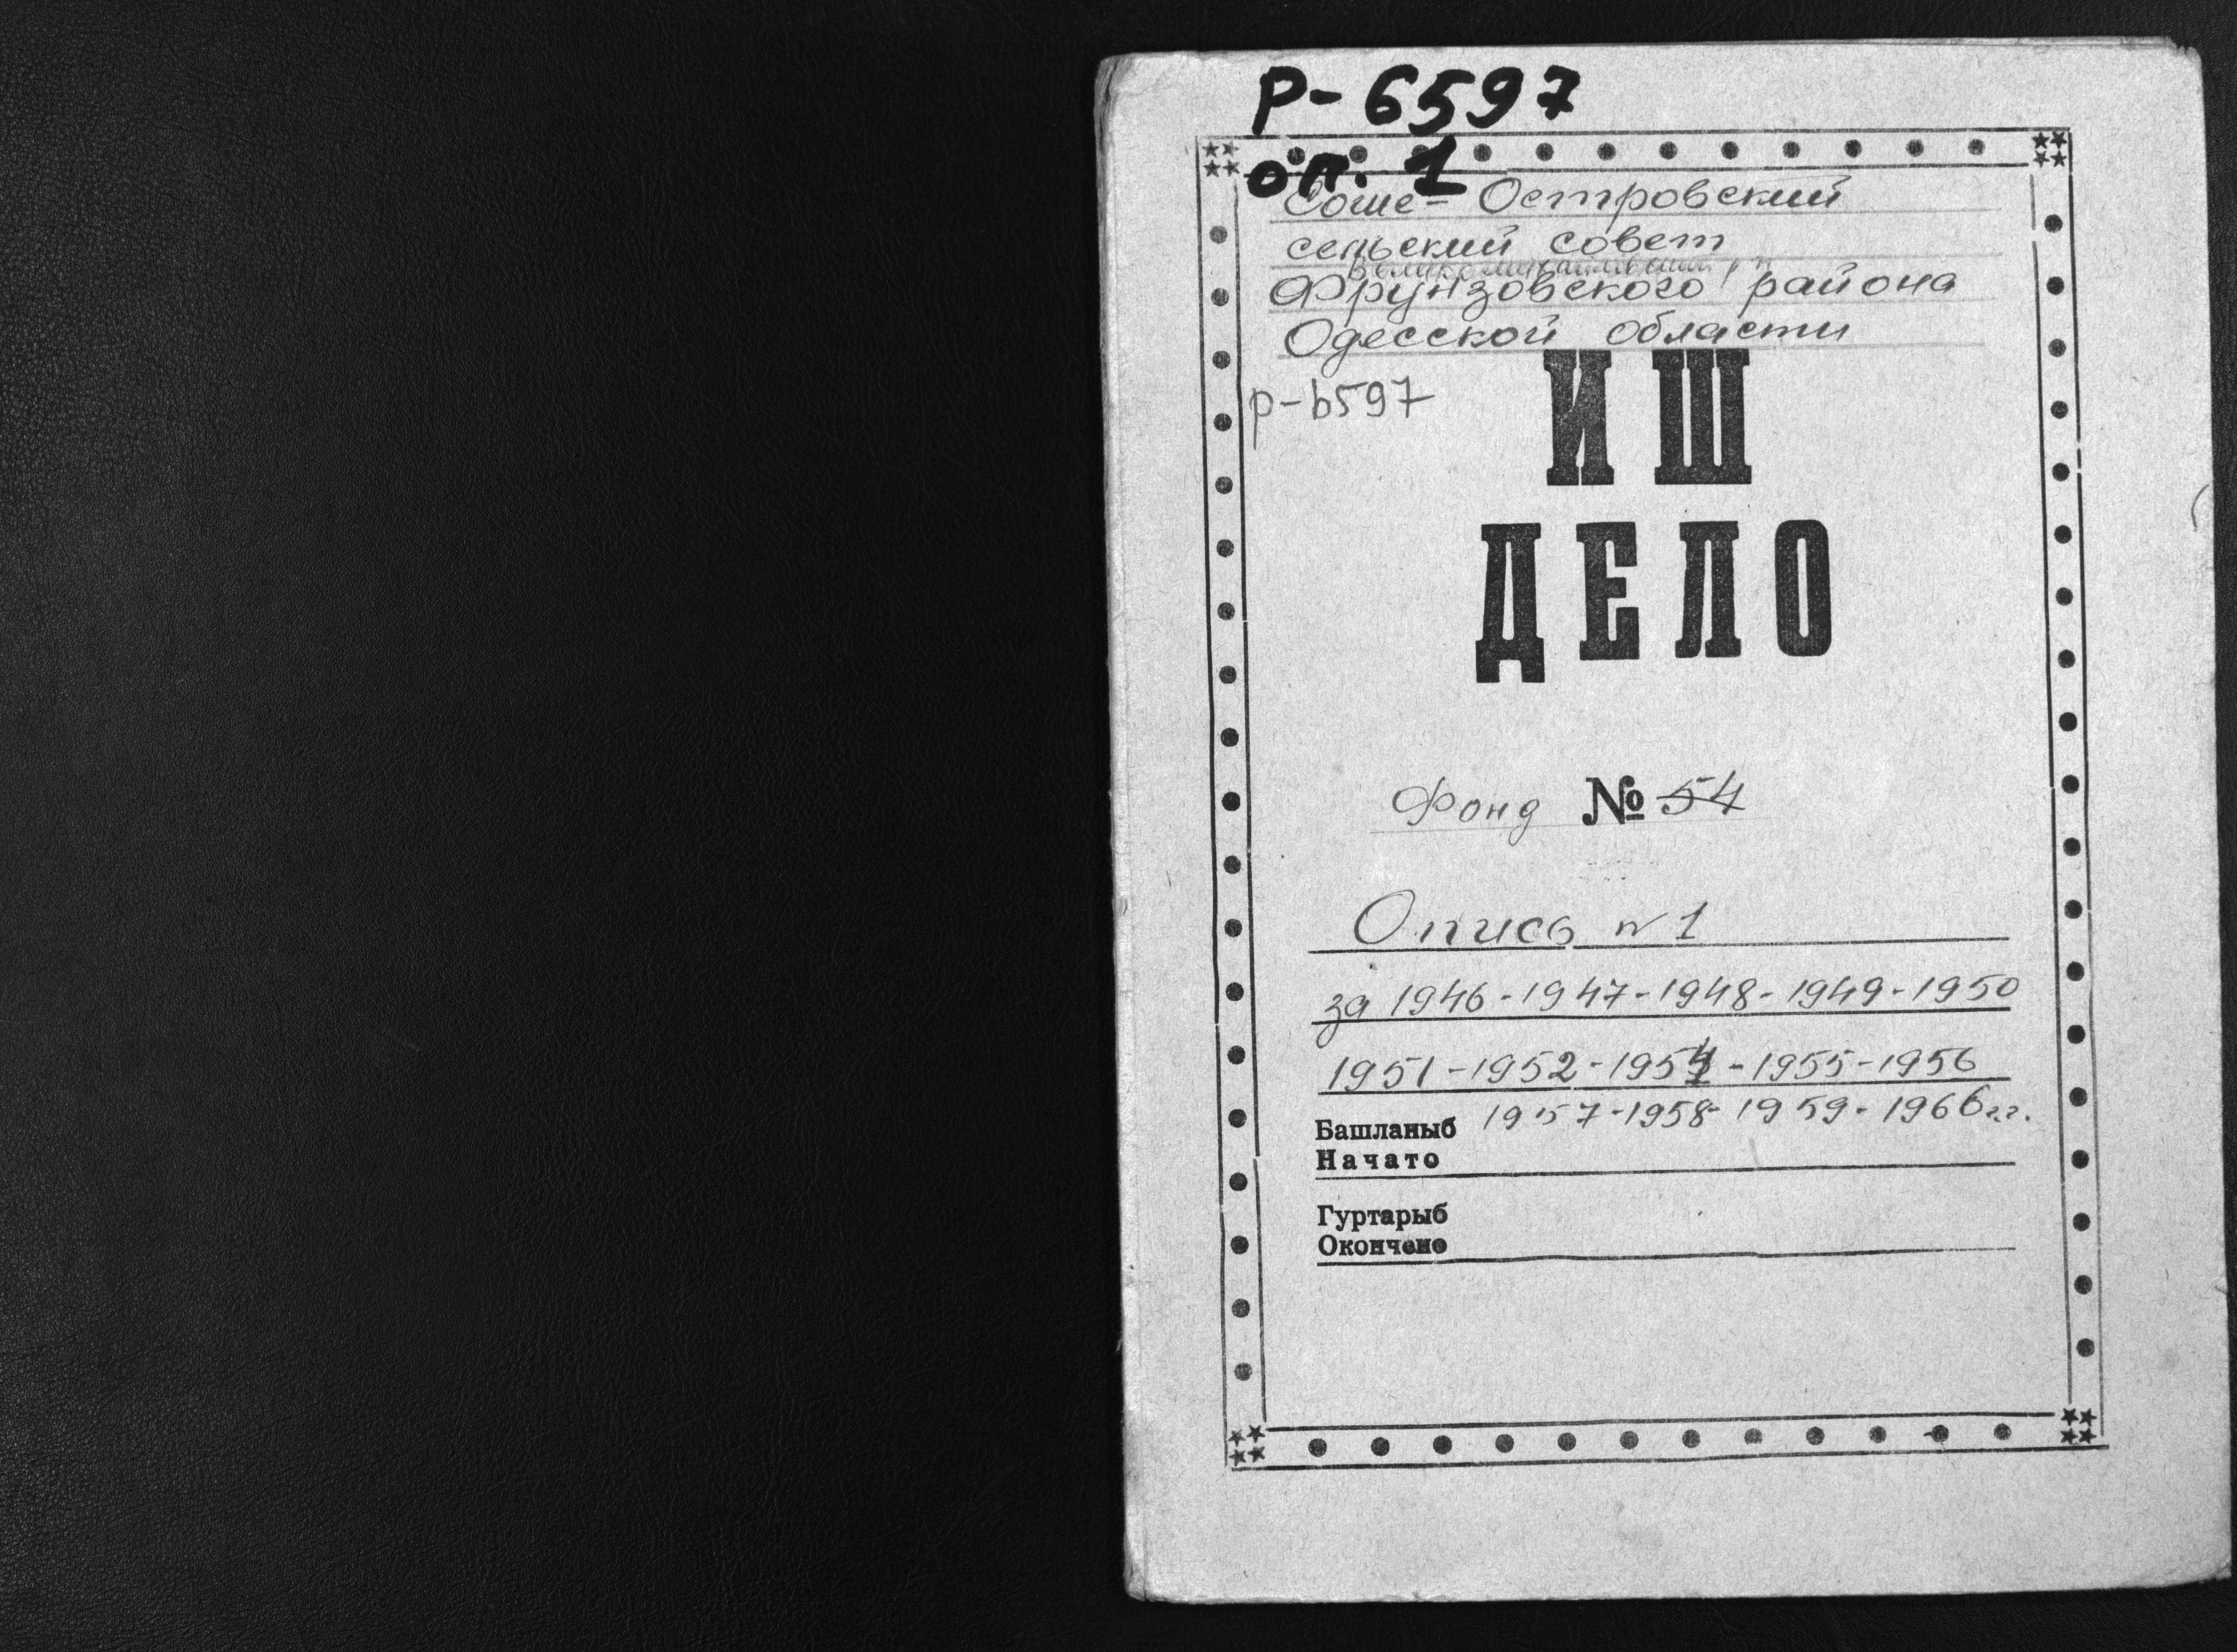 Р-6597
оп. 1
Соше-Островский
сельский совет
Великомихайлівський р-н
Фрунзовского района
Одесской области
р-6597
ИШ
ДЕЛО
Фонд № 54
Опись № 1
за 1946-1947-1948-1949-1950
1951-1952-1954-1955-1956
1957-1958-1959-1966 гг.
Башланыб
Начато
Гуртарыб
Окончено